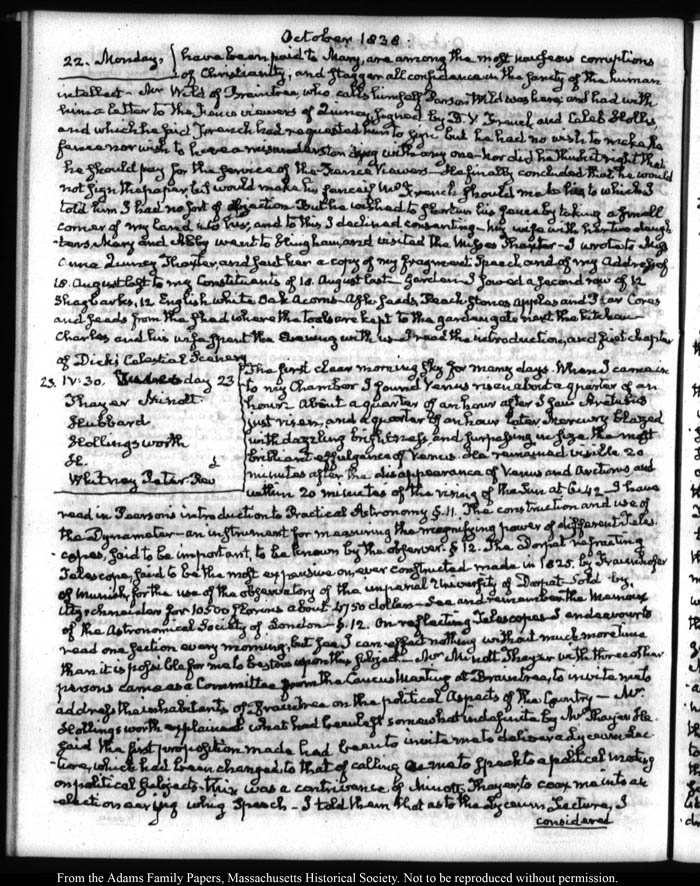 October 1838.
22. Monday, have been paid to Mary, are among the most nauseous corruptions
of Christianity, and stagger all confidence in the sanity of the human
intellect — Mr Wild of Braintree, who calls himself Parson Wild was here and had with
him a letter to the Fence viewers of Quincy, signed by D. French and Caleb Hollis,
and which he said French had requested him to sign but he had no wish to make the
fence nor wish to have a misunderstanding with any one nor did he think it right that
he should pay for the service of the Fence Viewers — He finally concluded that he would
not sign the paper but would make his fence if Mr French should make his to which I
told him I had no sort of objection But he wished to shorten his fence by taking a small
corner of my land into his, and to this I declined consenting — My wife with her two daugh-
-ters, Mary and Abby went to Hingham, and visited the Misses Thaxter — I wrote to Miss
Anna Quincy Thaxter, and sent her a copy of my fragment Speech and of my Address of
18. August last to my Constituents of 18. August last — Garden I sowed a second row of 12
Shagbarks, 12 English white Oak Acorns — Ash seeds, Peach stones apples and Pear Cores
and seeds from the shed where the tools are kept to the garden gate next the kitchen —
Charles and his wife spent the Evening with us — I read the introduction, and first chapter
of Dick's Celestial Scenery
23. IV:30. Tuesday 23
Thayer Minott.
Hubbard
Hollingsworth
H.
Whitney Peter. Rev
The first clear morning sky for many days. When I came in
to my Chamber I found Venus risen about a quarter of an
hour. About a quarter of an hour after I saw Arcturus
just risen, and a quarter of an hour later Mercury blazed
with dazzling brightness, and surpassing in size the most
brilliant effulgence of Venus. He remained visible 20
minutes after the disappearance of Venus and Arcturus and
within 20 minutes of the rising of the Sun at 6:42 — I have
read in Pearson's introduction to Practical Astronomy §. 11. The construction and use of
the Dynameter — an instrument for measuring the magnifying power of different Teles-
-copes, said to be important, to be known by the observer. § 12. The Dorpat refracting
Telescope, said to be the most expensive one, ever constructed made in 1825. by Frauenhofer
of Munich, for the use of the observatory of the imperial University of Dorpat — Sold by
Utzschneider for 10500 florins about 4750 dollars — See and remember the Memoirs
of the Astronomical Society of London — §. 12. On reflecting Telescopes I endeavour to
read one section every morning, but see I can effect nothing without much more time
than it is possible for me to bestow upon this subject — Mr Minott Thayer with three other
persons came as a Committee from the Caucus Meeting at Braintree, to invite me to
address the inhabitants of Braintree on the political Aspects of the Country — Mr
Hollingsworth explained what had been left somewhat indefinite by Mr Thayer. He
said the first proposition made had been to invite me to deliver a Lyceum Lec-
-ture, which had been changed to that of calling me to speak to a political meeting
on political subjects. This was a contrivance of Minott Thayer to coax me into an
electioneering whig Speech — I told them that as to the Lyceum Lecture, I
considered
From the Adams Family Papers, Massachusetts Historical Society. Not to be reproduced without permission.